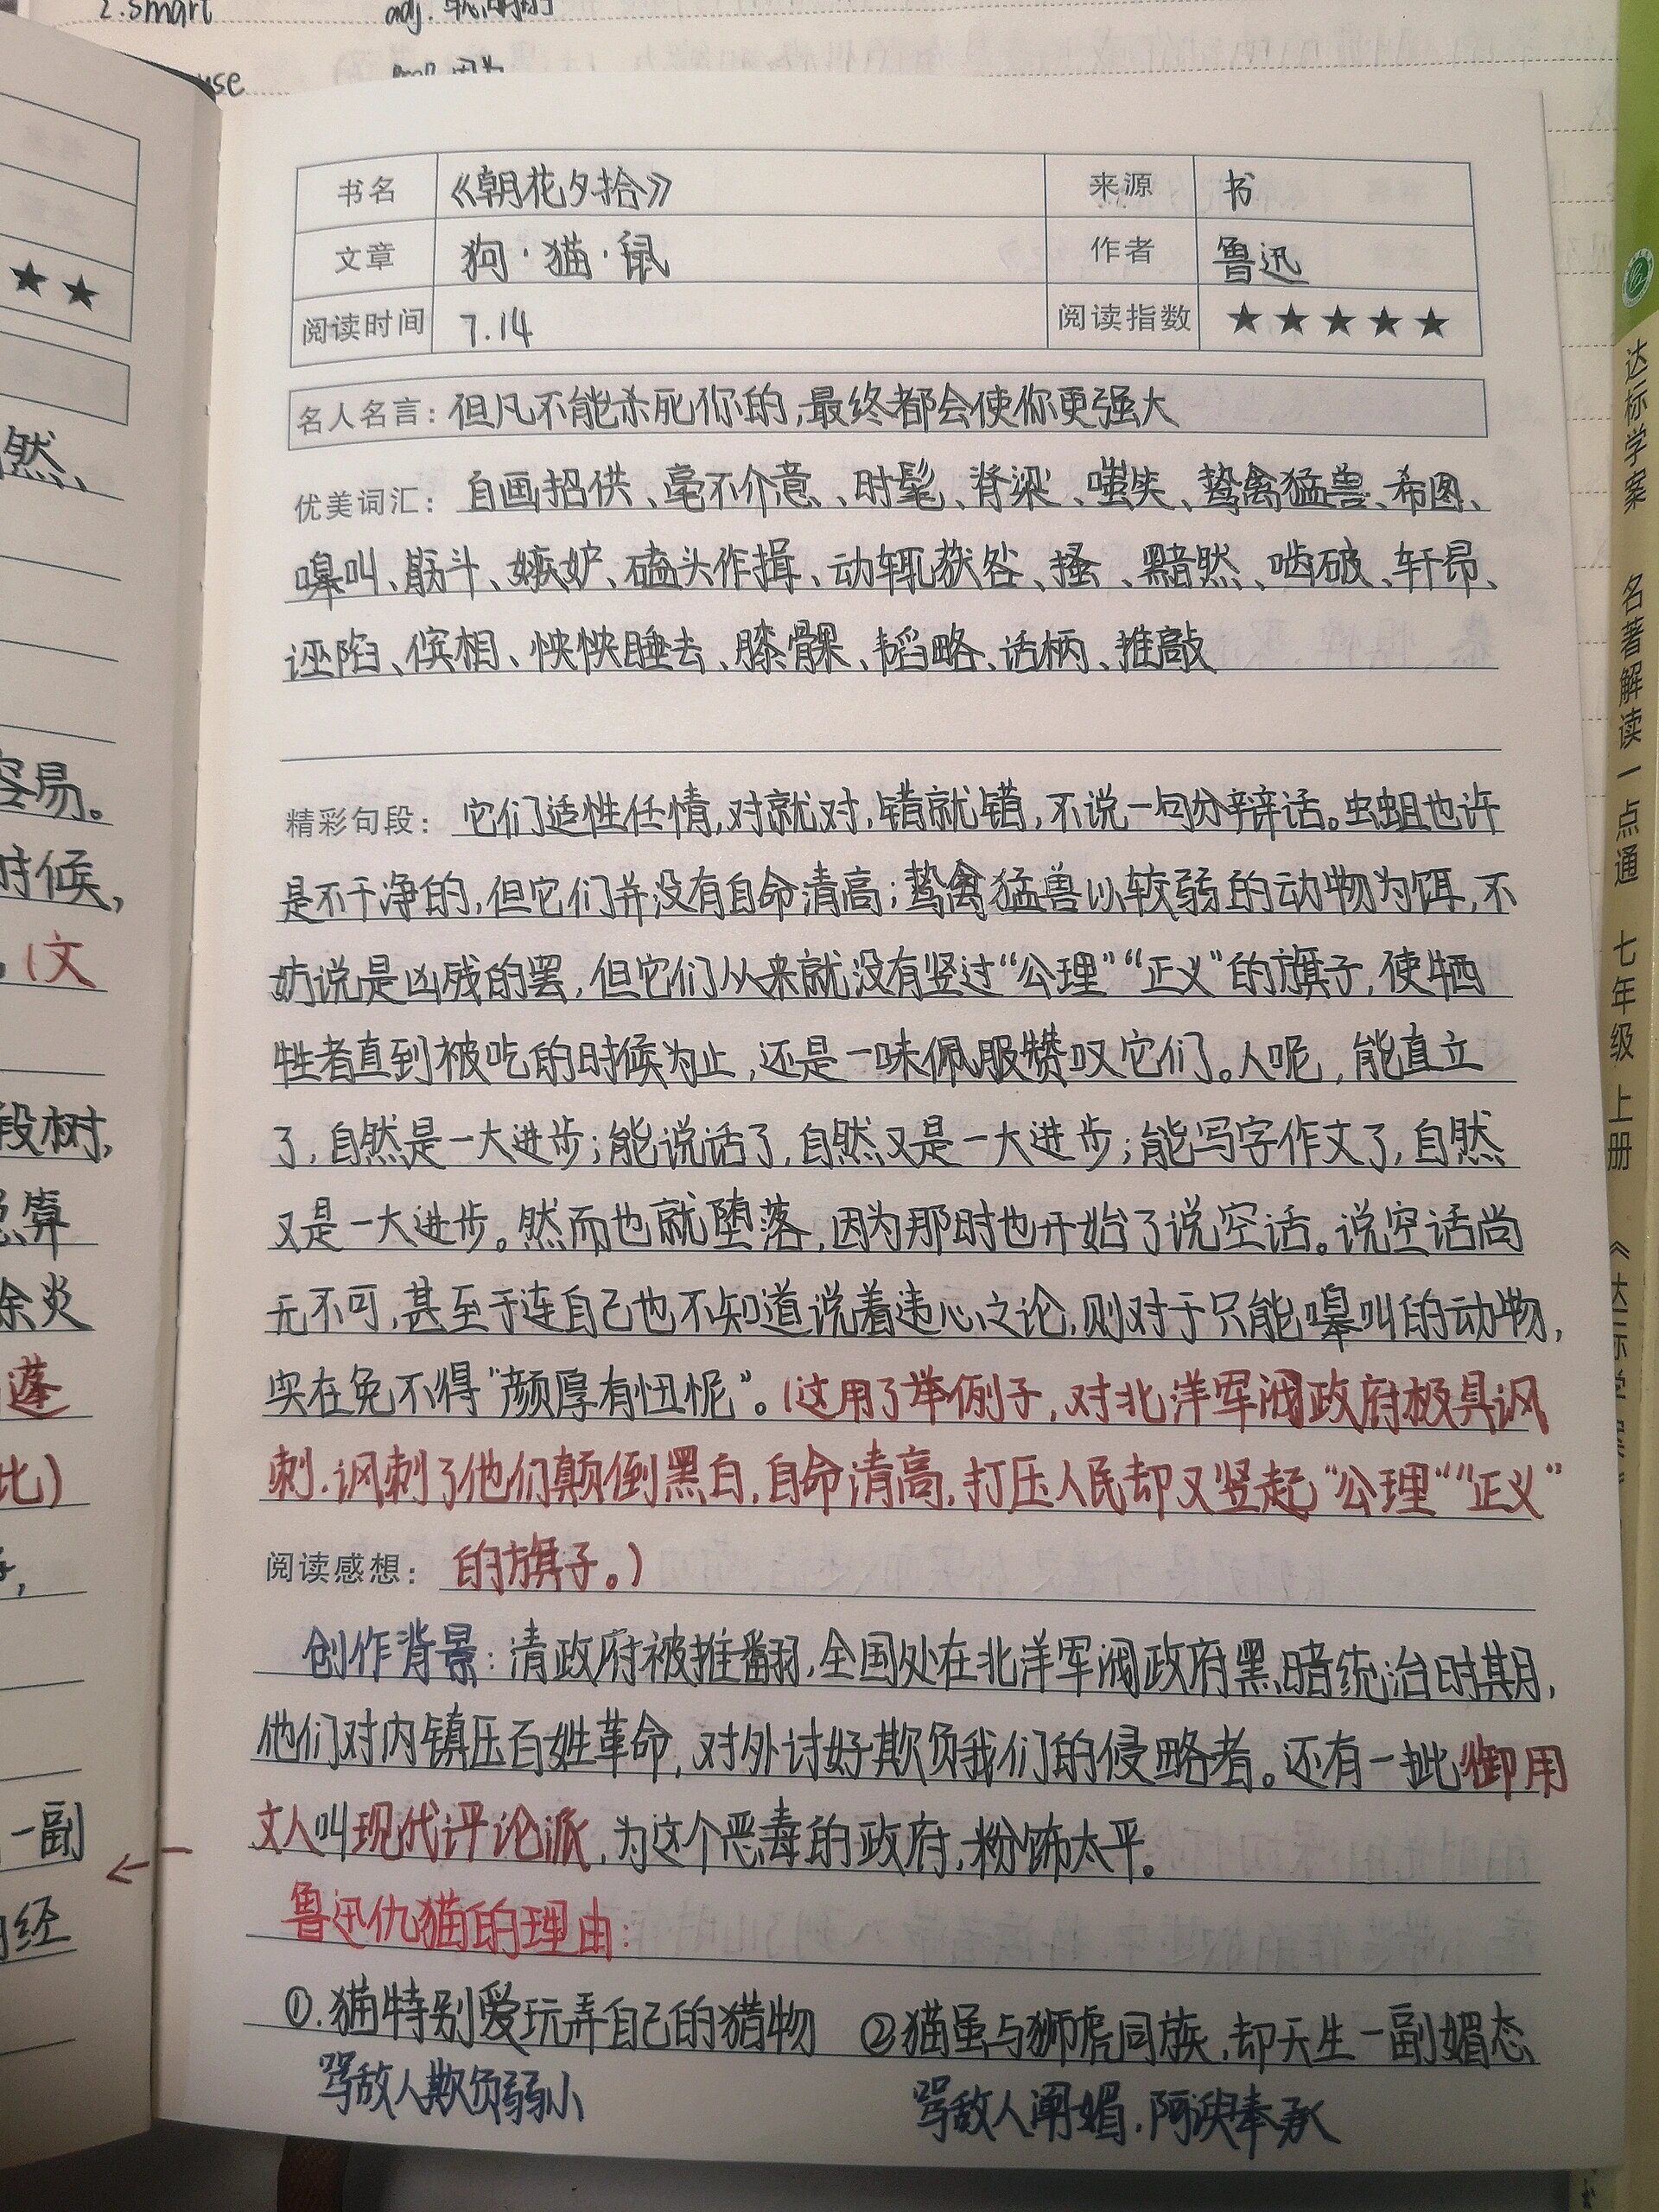 2.smart
adj.
use
书名 《朝花夕拾》 来源 书
文章 狗·猫·鼠 作者 鲁迅
阅读时间 7.14 阅读指数 ★★★★★
名人名言：但凡不能杀死你的，最终都会使你更强大
优美词汇：自画招供、毫不介意、时髦、脊梁、嗤笑、鸷禽猛兽、希图、
嗥叫、筋斗、嫉妒、磕头作揖、动辄获咎、搔、黯然、啮破、轩昂、
诬陷、傧相、怏怏睡去、膝髁、韬略、话柄、推敲
精彩句段：它们适性任情，对就对，错就错，不说一句分辩话。虫蛆也许
是不干净的，但它们并没有自命清高；鸷禽猛兽以较弱的动物为饵，不
妨说是凶残的罢，但它们从来就没有竖过“公理”“正义”的旗子，使牺
牲者直到被吃的时候为止，还是一味佩服赞叹它们。人呢，能直立
了，自然是一大进步；能说话了，自然又是一大进步；能写字作文了，自然
又是一大进步。然而也就堕落，因为那时也开始了说空话。说空话尚
无不可，甚至于连自己也不知道说着违心之论，则对于只能嗥叫的动物，
实在免不得“颜厚有忸怩”。（这用了举例子，对北洋军阀政府极具讽
刺．讽刺了他们颠倒黑白，自命清高，打压人民却又竖起“公理”“正义”
阅读感想：的旗子。）
创作背景：清政府被推翻，全国处在北洋军阀政府黑暗统治时期，
他们对内镇压百姓革命，对外讨好欺负我们的侵略者。还有一批御用
文人叫现代评论派，为这个恶毒的政府，粉饰太平。
鲁迅仇猫的理由：
①．猫特别爱玩弄自己的猎物 ②猫虽与狮虎同族，却天生一副媚态
骂敌人欺负弱小 骂敌人阐媚．阿谀奉承
★★
然、
容易。
时候，
。（文
段树，
总算
余炎
蓬
比）
一副
的经
达标学案 名著解读一点通 七年级 上册